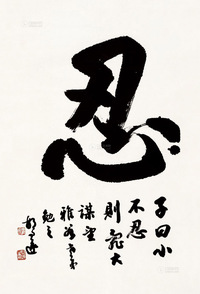 忍
子曰小
不忍
則亂大
謀望
雅
勉之